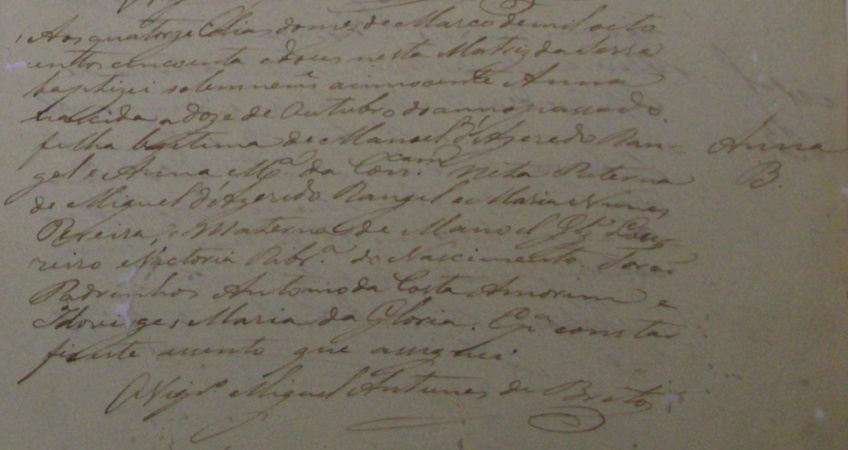 Aos quatorze dias do mes de Março de mil oito
centos cincoenta e dous nesta Matriz da Serra
baptizei solemnem.e a innocente Anna
nascida a doze de Outubro do anno passado
filha legitima de Manoel d'Azeredo Ran-
gel e Anna M.a da Con.cam Neta Paterna
de Miguel d'Azeredo Rangel e Maria Nunes
Pereira, e Materna de Manoel Glz' Lou-
reiro e Victoria Ribr.a do Nascimento. Forão
Padrinhos Antonio da Costa Amorim e
Edoviges Maria da Gloria. E p.a constar
fiz este assento que assignei.
O Vigr.o Miguel Antunes de Brito
Anna
B.